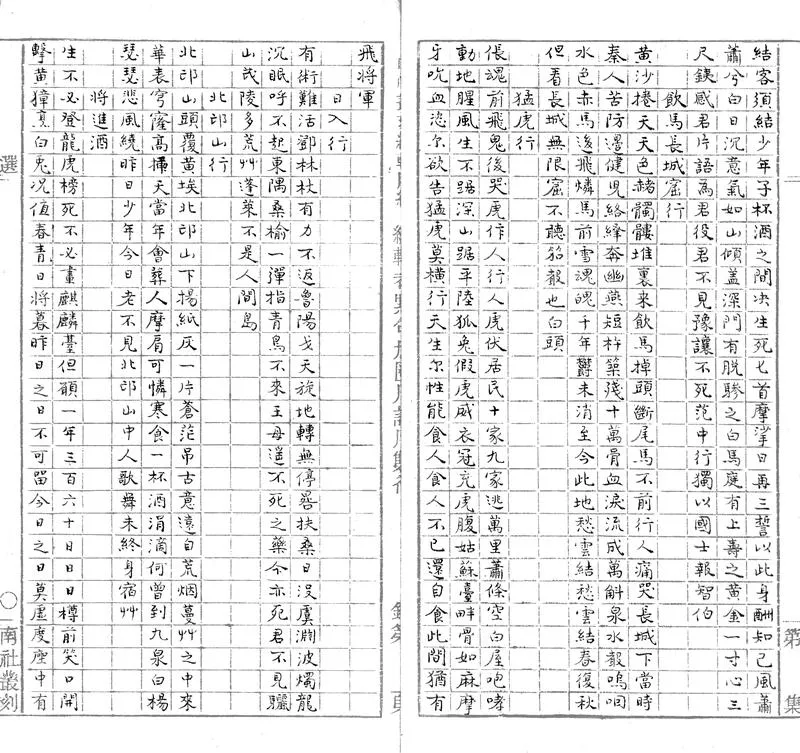 結客須結少年子杯酒之間决生死匕首摩挲日再三誓以此身酬知己風蕭
蕭兮白日沉意氣如山傾蓋深門有脫驂之白馬庭有上壽之黃金一寸心三
尺鋏感君片語為君役君不見豫讓不死范中行獨以國士報智伯
飲馬長城窟行
黃沙捲天天色赭髑髏堆裏來飲馬掉頭斷尾馬不前行人痛哭長城下當時
秦人苦防邊健兒絡繹奔幽燕短杵築殘十萬骨血淚流成萬斛泉水聲嗚咽
水色赤馬後飛燐馬前雪魂魄千年鬱未消至今此地愁雲結愁雲結春復秋
但看長城無限窟不聽笳聲也白頭
猛虎行
倀魂前飛鬼後哭虎作人行人虎伏居民十家九家逃萬里蕭條空白屋咆哮
動地腥風生不踞深山踞平陸狐兔假虎威衣冠充虎腹姑蘇臺畔骨如麻摩
牙吮血恣尔欲告猛虎莫橫行天生尔性能食人食人不已還自食此間猶有
飛將軍
日入行
有術難活鄧林杖有力不返魯陽戈天旋地轉無停晷扶桑日沒虞淵波燭龍
沉眠呼不起東隅桑榆一彈指青鳥不來王母遥不死之藥今亦死君不見驪
山茂陵多荒艸蓬萊不是人間島
北邙山行
北邙山頭覆黃埃北邙山下揚紙灰一片蒼茫吊古意遠自荒烟蔓艸之中來
華表穹窿高插天當年會葬人摩肩可憐寒食一杯酒涓滴何曾到九泉白楊
瑟瑟悲風繞昨日少年今日老不見北邙山中人歌舞未終身宿艸
將進酒
生不必登龍虎榜死不必畫麒麟臺但願一年三百六十日日日樽前笑口開
擊黃獐烹白兔况值春青日將暮昨日之日不可留今日之日莫虛度座中有
選
南社叢刻
第 集